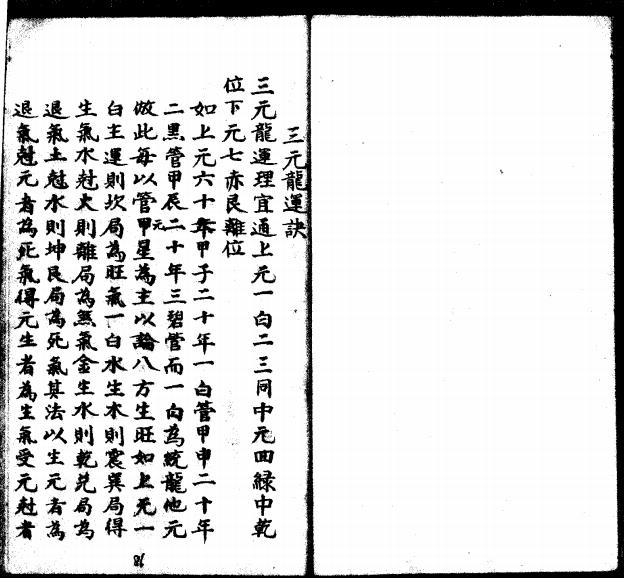 三元龍運訣
三元龍運理宜通上元一白二三同中元四綠中乾
位下元七赤艮離位
如上元六十年甲子二十年一白管甲申二十年
二黑管甲辰二十年三碧管而一白為統龍他元
倣此每以管甲元星為主以論八方生旺如上元一
白主運則坎局為旺氣一白水生木則震巽局得
生氣水尅火則離局為煞氣金生水則乾兌局為
退氣土尅水則坤艮局為死氣其法以生元者為
退氣尅元者為死氣得元生者為生氣受元尅者